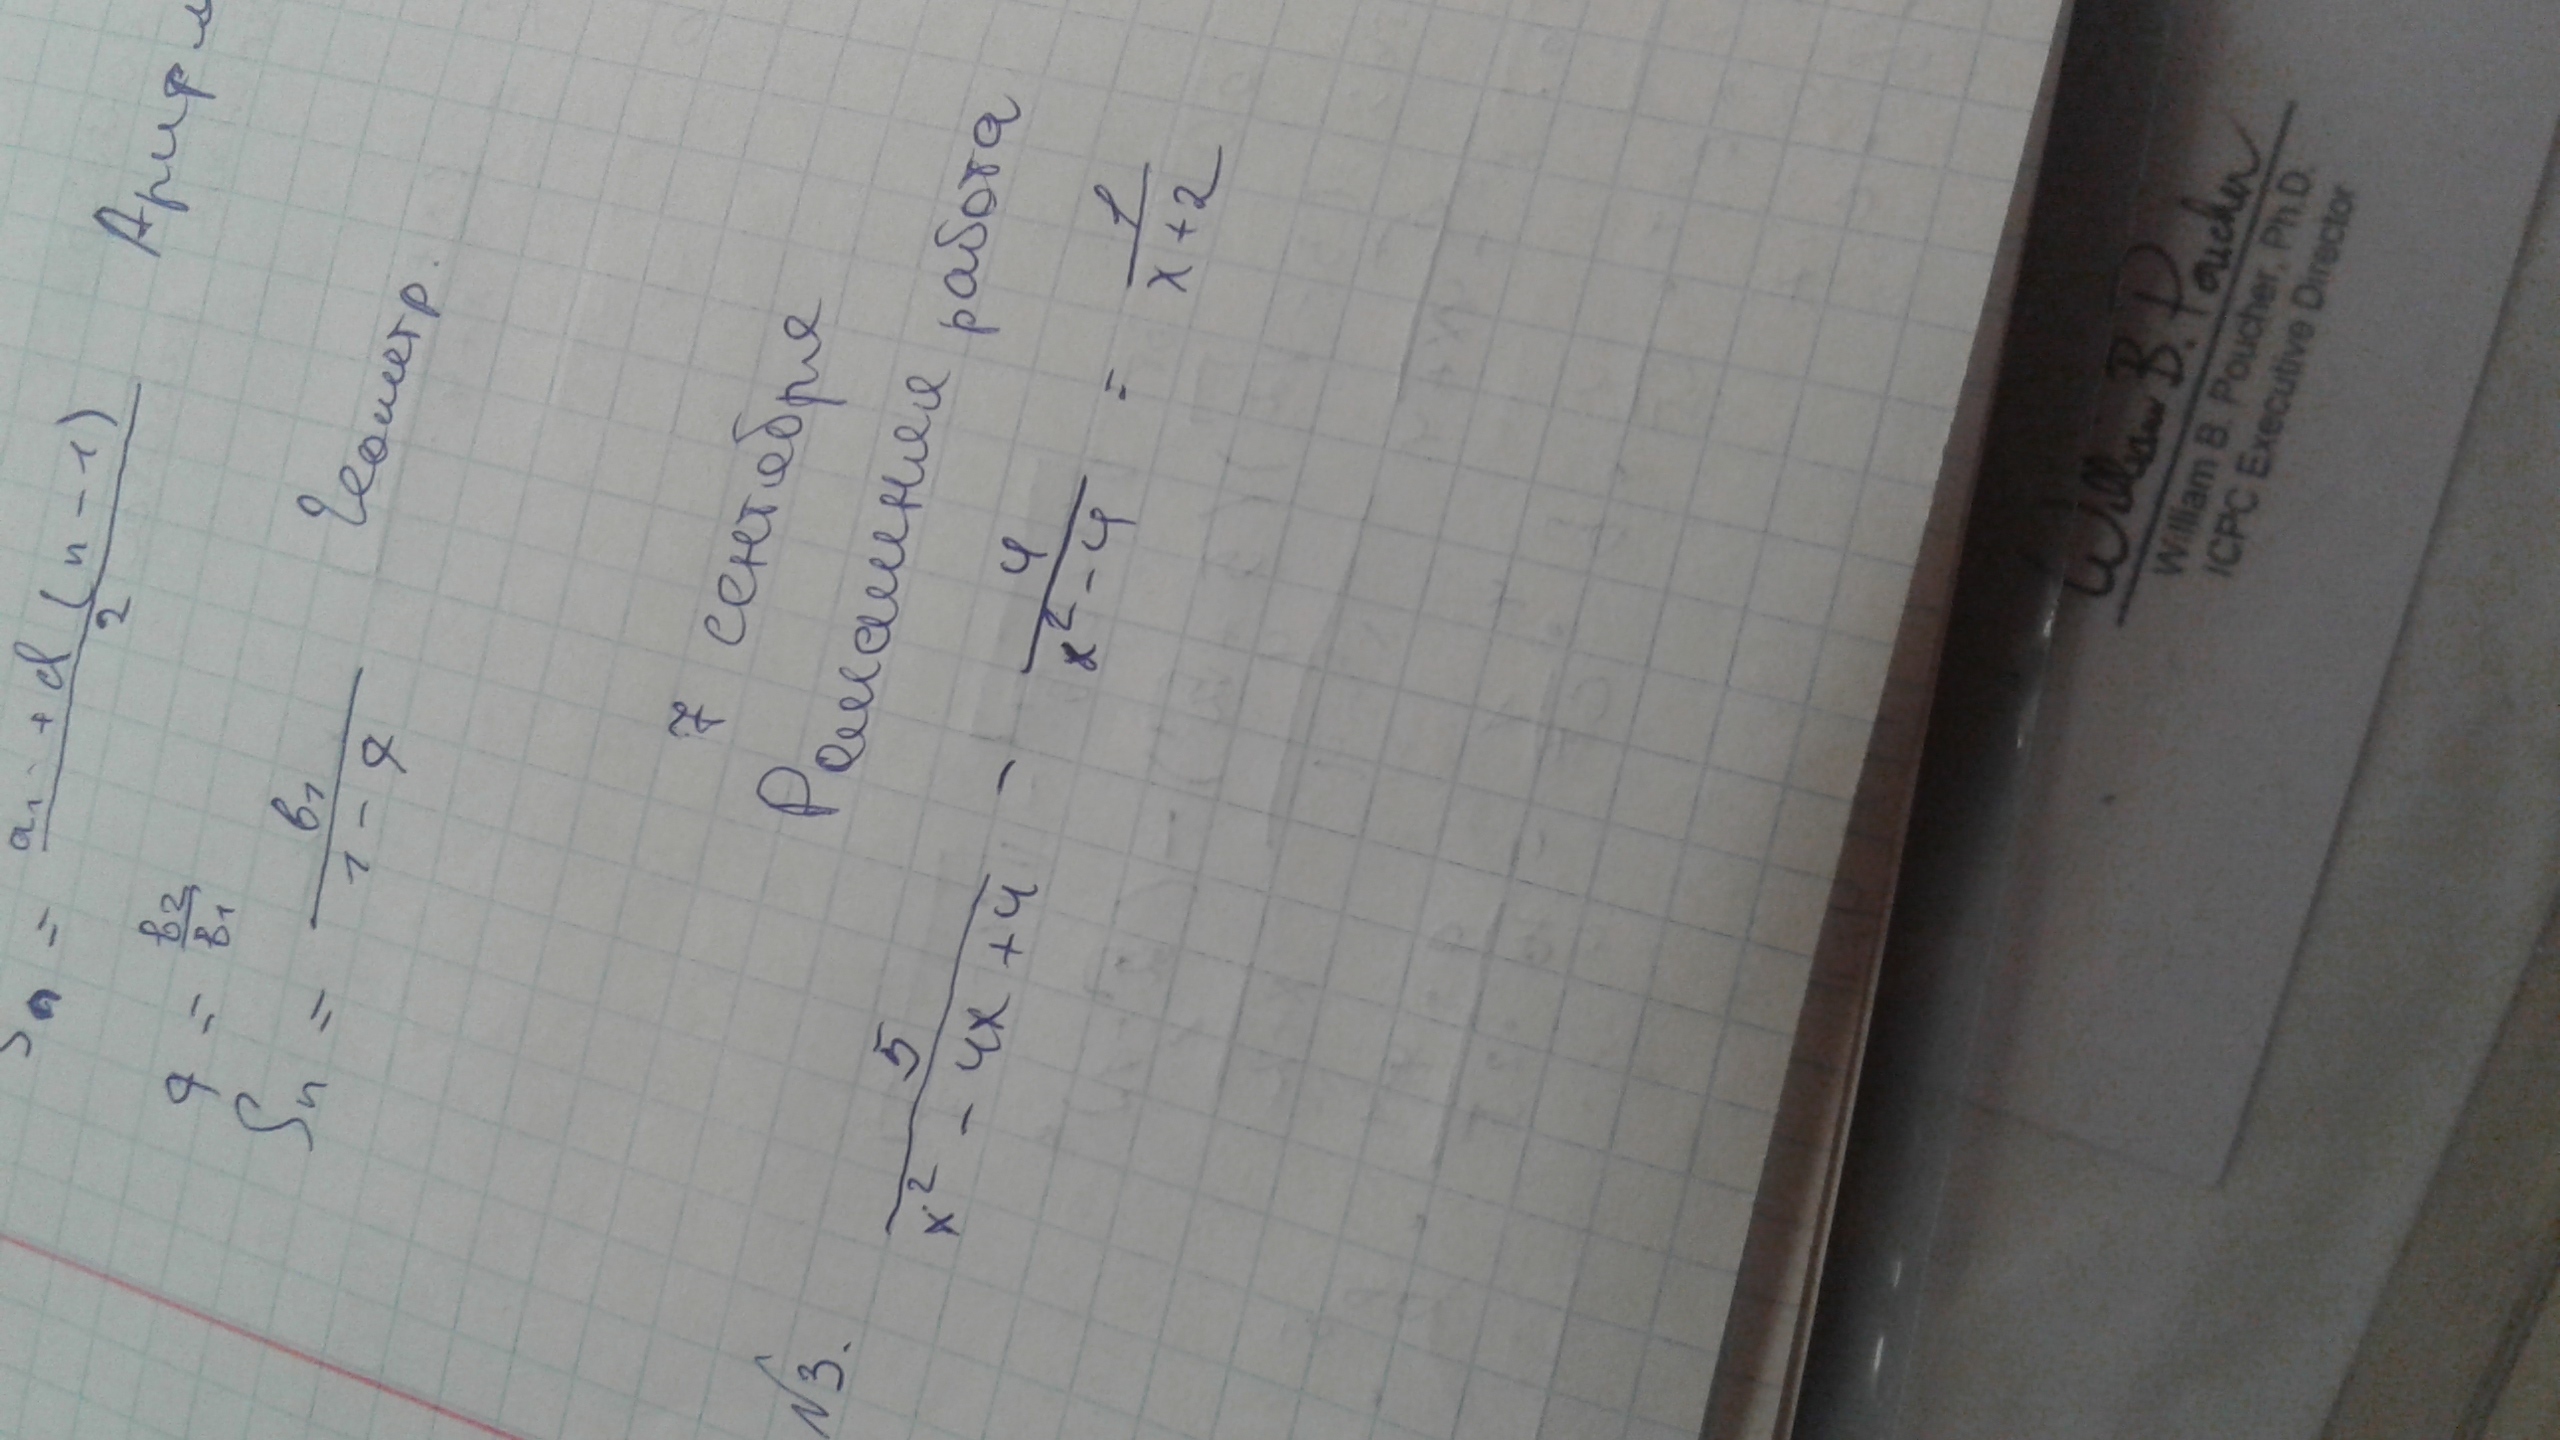 Sn = a1 + d(n-1) / 2
q = b2/b1
Sn = b1 / 1 - q Геометр.
7 сентября
Домашняя работа
№3. 5 / x² - 4x + 4 - 4 / x² - 4 = 1 / x + 2
William B. Poucher
William B. Poucher, Ph.D.
ICPC Executive Director